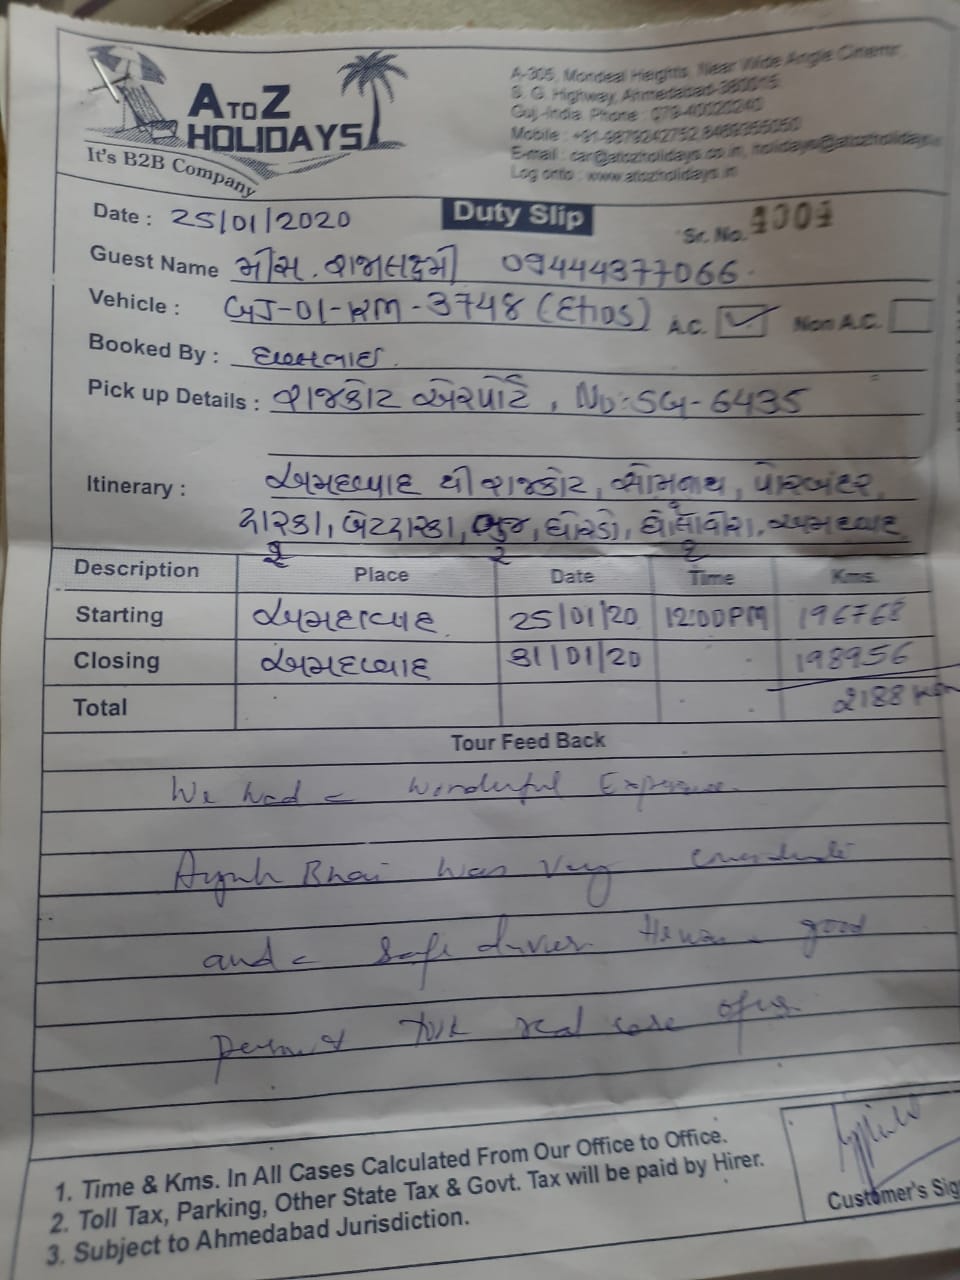 A TO Z
HOLIDAYS
It's B2B Company
A-305, Mondeal Heights, Near Wide Angle Cinema,
S. G. Highway, Ahmedabad-380015
Guj.-India. Phone : 079-40020240
Mobile : +91-9879242752
E-mail : car@atozholidays.co.in, holidays@atozholidays
Log onto : www.atozholidays.in
Date : 25/01/2020
Duty Slip
Sr. No. 4004
Guest Name મીસ. રાજલક્ષ્મી 09444377066
Vehicle : GJ-01-KM-3748 (Etios) A.C. ✓ Non A.C.
Booked By :
Pick up Details : રાજકોટ એરપોર્ટ, No:SG-6435
Itinerary : અમદાવાદ થી રાજકોટ, સોમનાથ, પોરબંદર,
દ્વારકા, બેટદ્વારકા, ભુજ, ધોરડો, ધોલાવીરા. અમદાવાદ
Description Place Date Time Kms.
Starting અમદાવાદ 25/01/20 12:00PM 196768
Closing અમદાવાદ 31/01/20 198956
Total 2188
Tour Feed Back
We had a wonderful Experience
Bhai was very considerate
and a safe driver. He was a good
took real care of us.
1. Time & Kms. In All Cases Calculated From Our Office to Office.
2. Toll Tax, Parking, Other State Tax & Govt. Tax will be paid by Hirer.
3. Subject to Ahmedabad Jurisdiction.
Customer's Sig